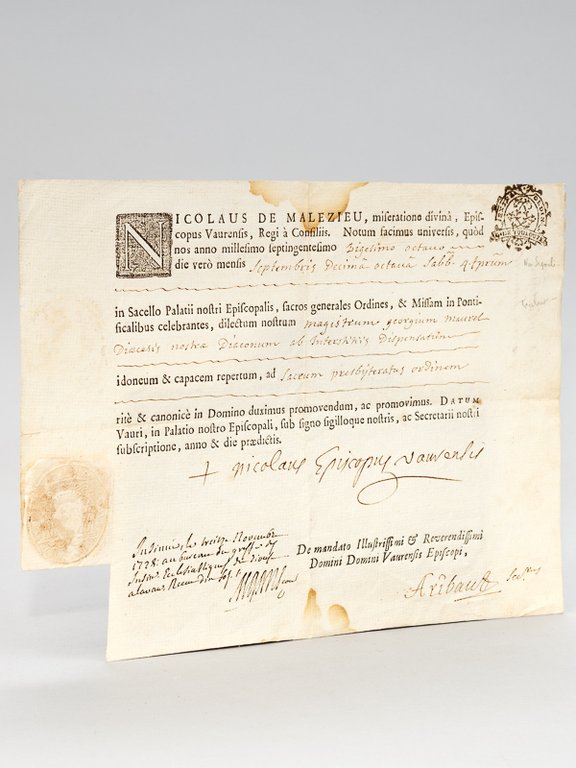 NICOLAUS DE MALEZIEU, miseratione divinâ, Epis-
copus Vaurensis, Regi à Consiliis. Notum facimus universis, quòd
nos anno millesimo septingentesimo Vigesimo octavo
die verò mensis Septembris Decimâ octavâ Sabb. 4. tprum
in Sacello Palatii nostri Episcopalis, sacros generales Ordines, & Missam in Ponti-
ficalibus celebrantes, dilectum nostrum magistrum georgium maurel
Diœcesis nostræ Diaconum ab Interstitiis Dispensatum
idoneum & capacem repertum, ad Sacrum presbyteratus ordinem
ritè & canonicè in Domino duximus promovendum, ac promovimus. DATUM
Vauri, in Palatio nostro Episcopali, sub signo sigilloque nostris, ac Secretarii nostri
subscriptione, anno & die prædictis.
+ nicolaus Episcopus vaurensis
Insinué le treize Novembre
1728 au bureau du greffe des
Insin. Eclesiastiques du dioceze
a lavaur Receu
De mandato Illustrissimi & Reverendissimi
Domini Domini Vaurensis Episcopi,
Aribaut